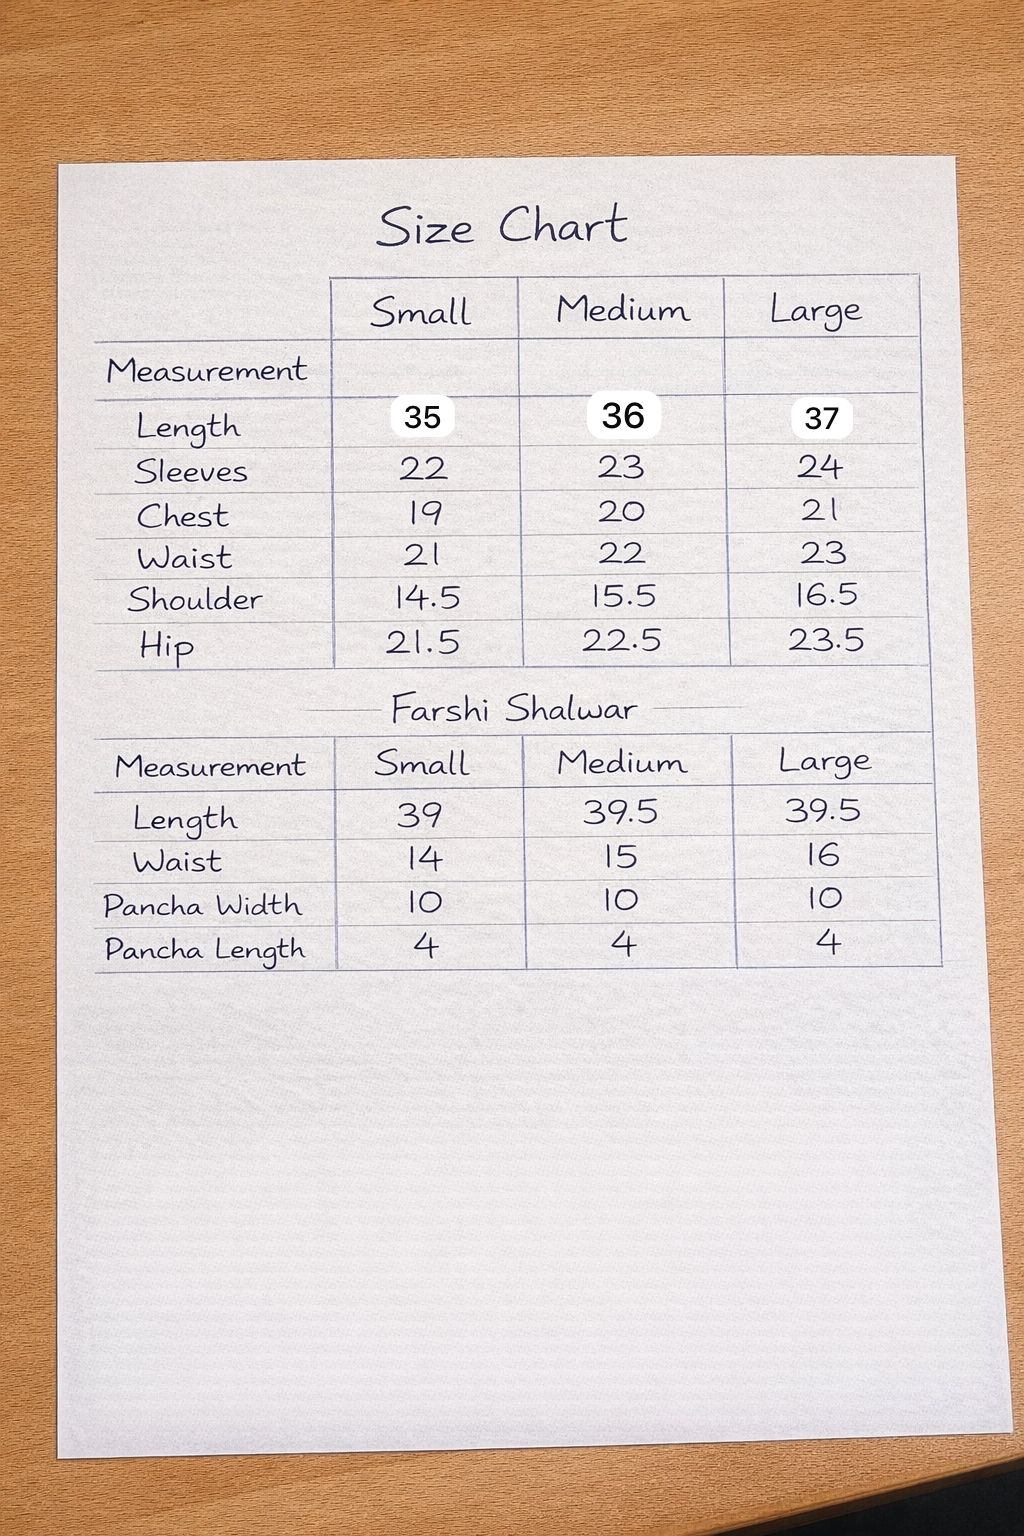 Size Chart
Small Medium Large
Measurement
Length 35 36 37
Sleeves 22 23 24
Chest 19 20 21
Waist 21 22 23
Shoulder 14.5 15.5 16.5
Hip 21.5 22.5 23.5
Farshi Shalwar
Measurement Small Medium Large
Length 39 39.5 39.5
Waist 14 15 16
Pancha Width 10 10 10
Pancha Length 4 4 4